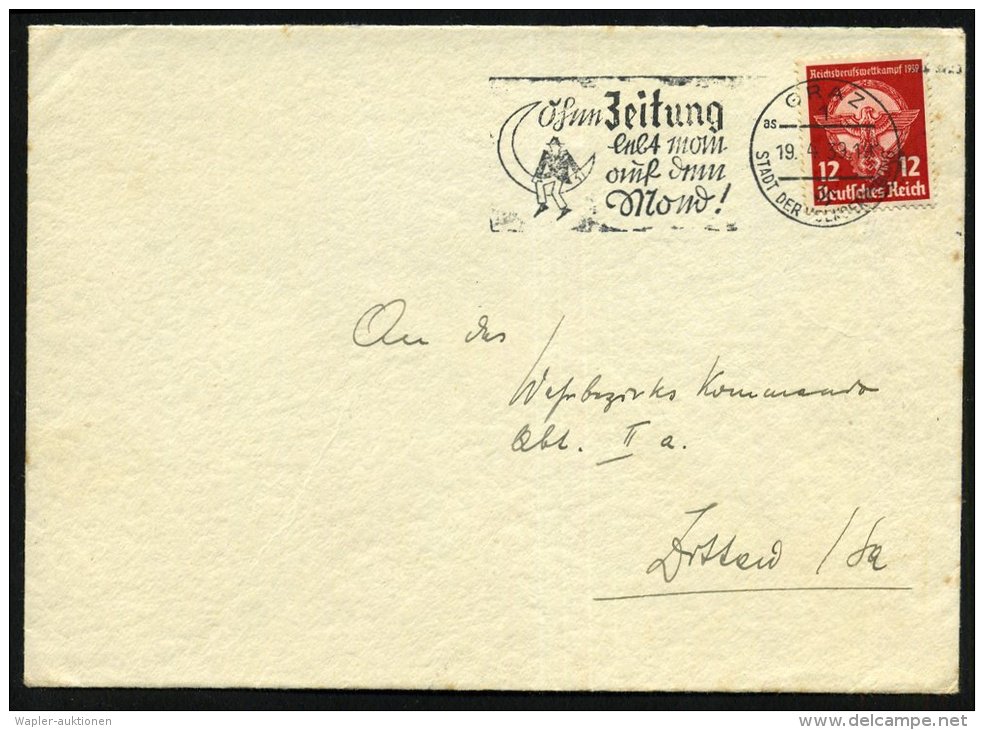 Reichsberufswettkampf 1939
12 12
Deutsches Reich
GRAZ
1
as
19. 4. 39
STADT DER VOLKSERHEBUNG
Ohne Zeitung
lebt man
auf dem
Mond!
An das
Wehrbezirks Kommando
Abt. II a.
Zittau / Sa
Wapler-auktionen
©delcampe.net